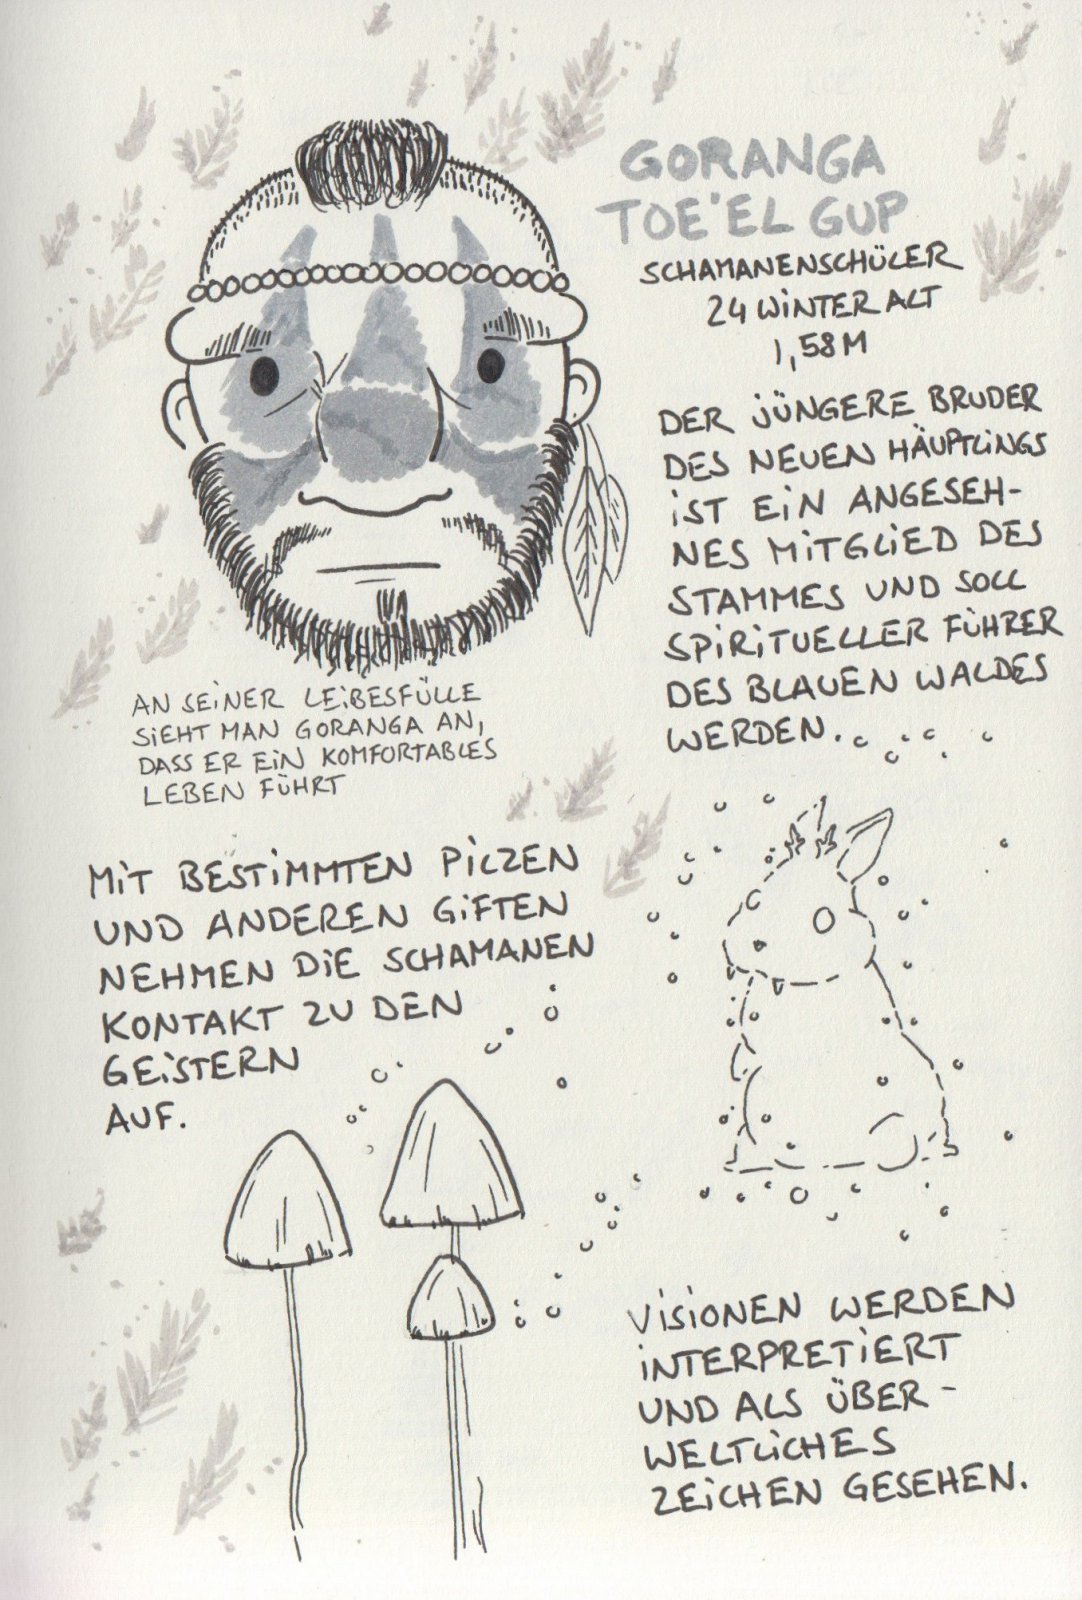 GORANGA
TOE'EL GUP
SCHAMANENSCHÜLER
24 WINTER ALT
1,58 M
DER JÜNGERE BRUDER
DES NEUEN HÄUPTLINGS
IST EIN ANGESEH-
NES MITGLIED DES
STAMMES UND SOLL
SPIRITUELLER FÜHRER
DES BLAUEN WALDES
WERDEN.
AN SEINER LEIBESFÜLLE
SIEHT MAN GORANGA AN,
DASS ER EIN KOMFORTABLES
LEBEN FÜHRT
MIT BESTIMMTEN PILZEN
UND ANDEREN GIFTEN
NEHMEN DIE SCHAMANEN
KONTAKT ZU DEN
GEISTERN
AUF.
VISIONEN WERDEN
INTERPRETIERT
UND ALS ÜBER-
WELTLICHES
ZEICHEN GESEHEN.